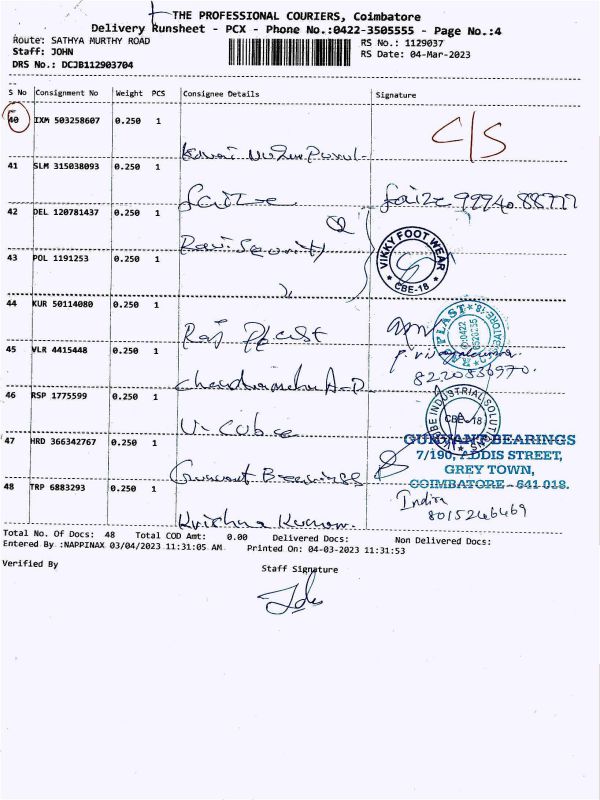 THE PROFESSIONAL COURIERS, Coimbatore
Delivery Runsheet - PCX - Phone No.:0422-3505555 - Page No.:4
Route: SATHYA MURTHY ROAD
RS No.: 1129037
Staff: JOHN
RS Date: 04-Mar-2023
DRS No.: DCJB112903704
S No Consignment No Weight PCS Consignee Details Signature
40 IXM 503258607 0.250 1
C/S
41 SLM 315038093 0.250 1
Faize
Faize 99940 88777
42 DEL 120781437 0.250 1
Ravi Security
VIKKY FOOT WEAR
CBE-18
43 POL 1191253 0.250 1
44 KUR 50114080 0.250 1
Raj Plast
45 VLR 4415448 0.250 1
8220536970.
46 RSP 1775599 0.250 1
U-Cube
CBE-18
47 HRD 366342767 0.250 1
BEARINGS
7/190, ADDIS STREET,
GREY TOWN,
COIMBATORE - 641 018.
48 TRP 6883293 0.250 1
Krishna Kumar.
Indira
8015246469
Total No. Of Docs: 48 Total COD Amt: 0.00 Delivered Docs: Non Delivered Docs:
Entered By :NAPPINAX 03/04/2023 11:31:05 AM. Printed On: 04-03-2023 11:31:53
Verified By
Staff Signature